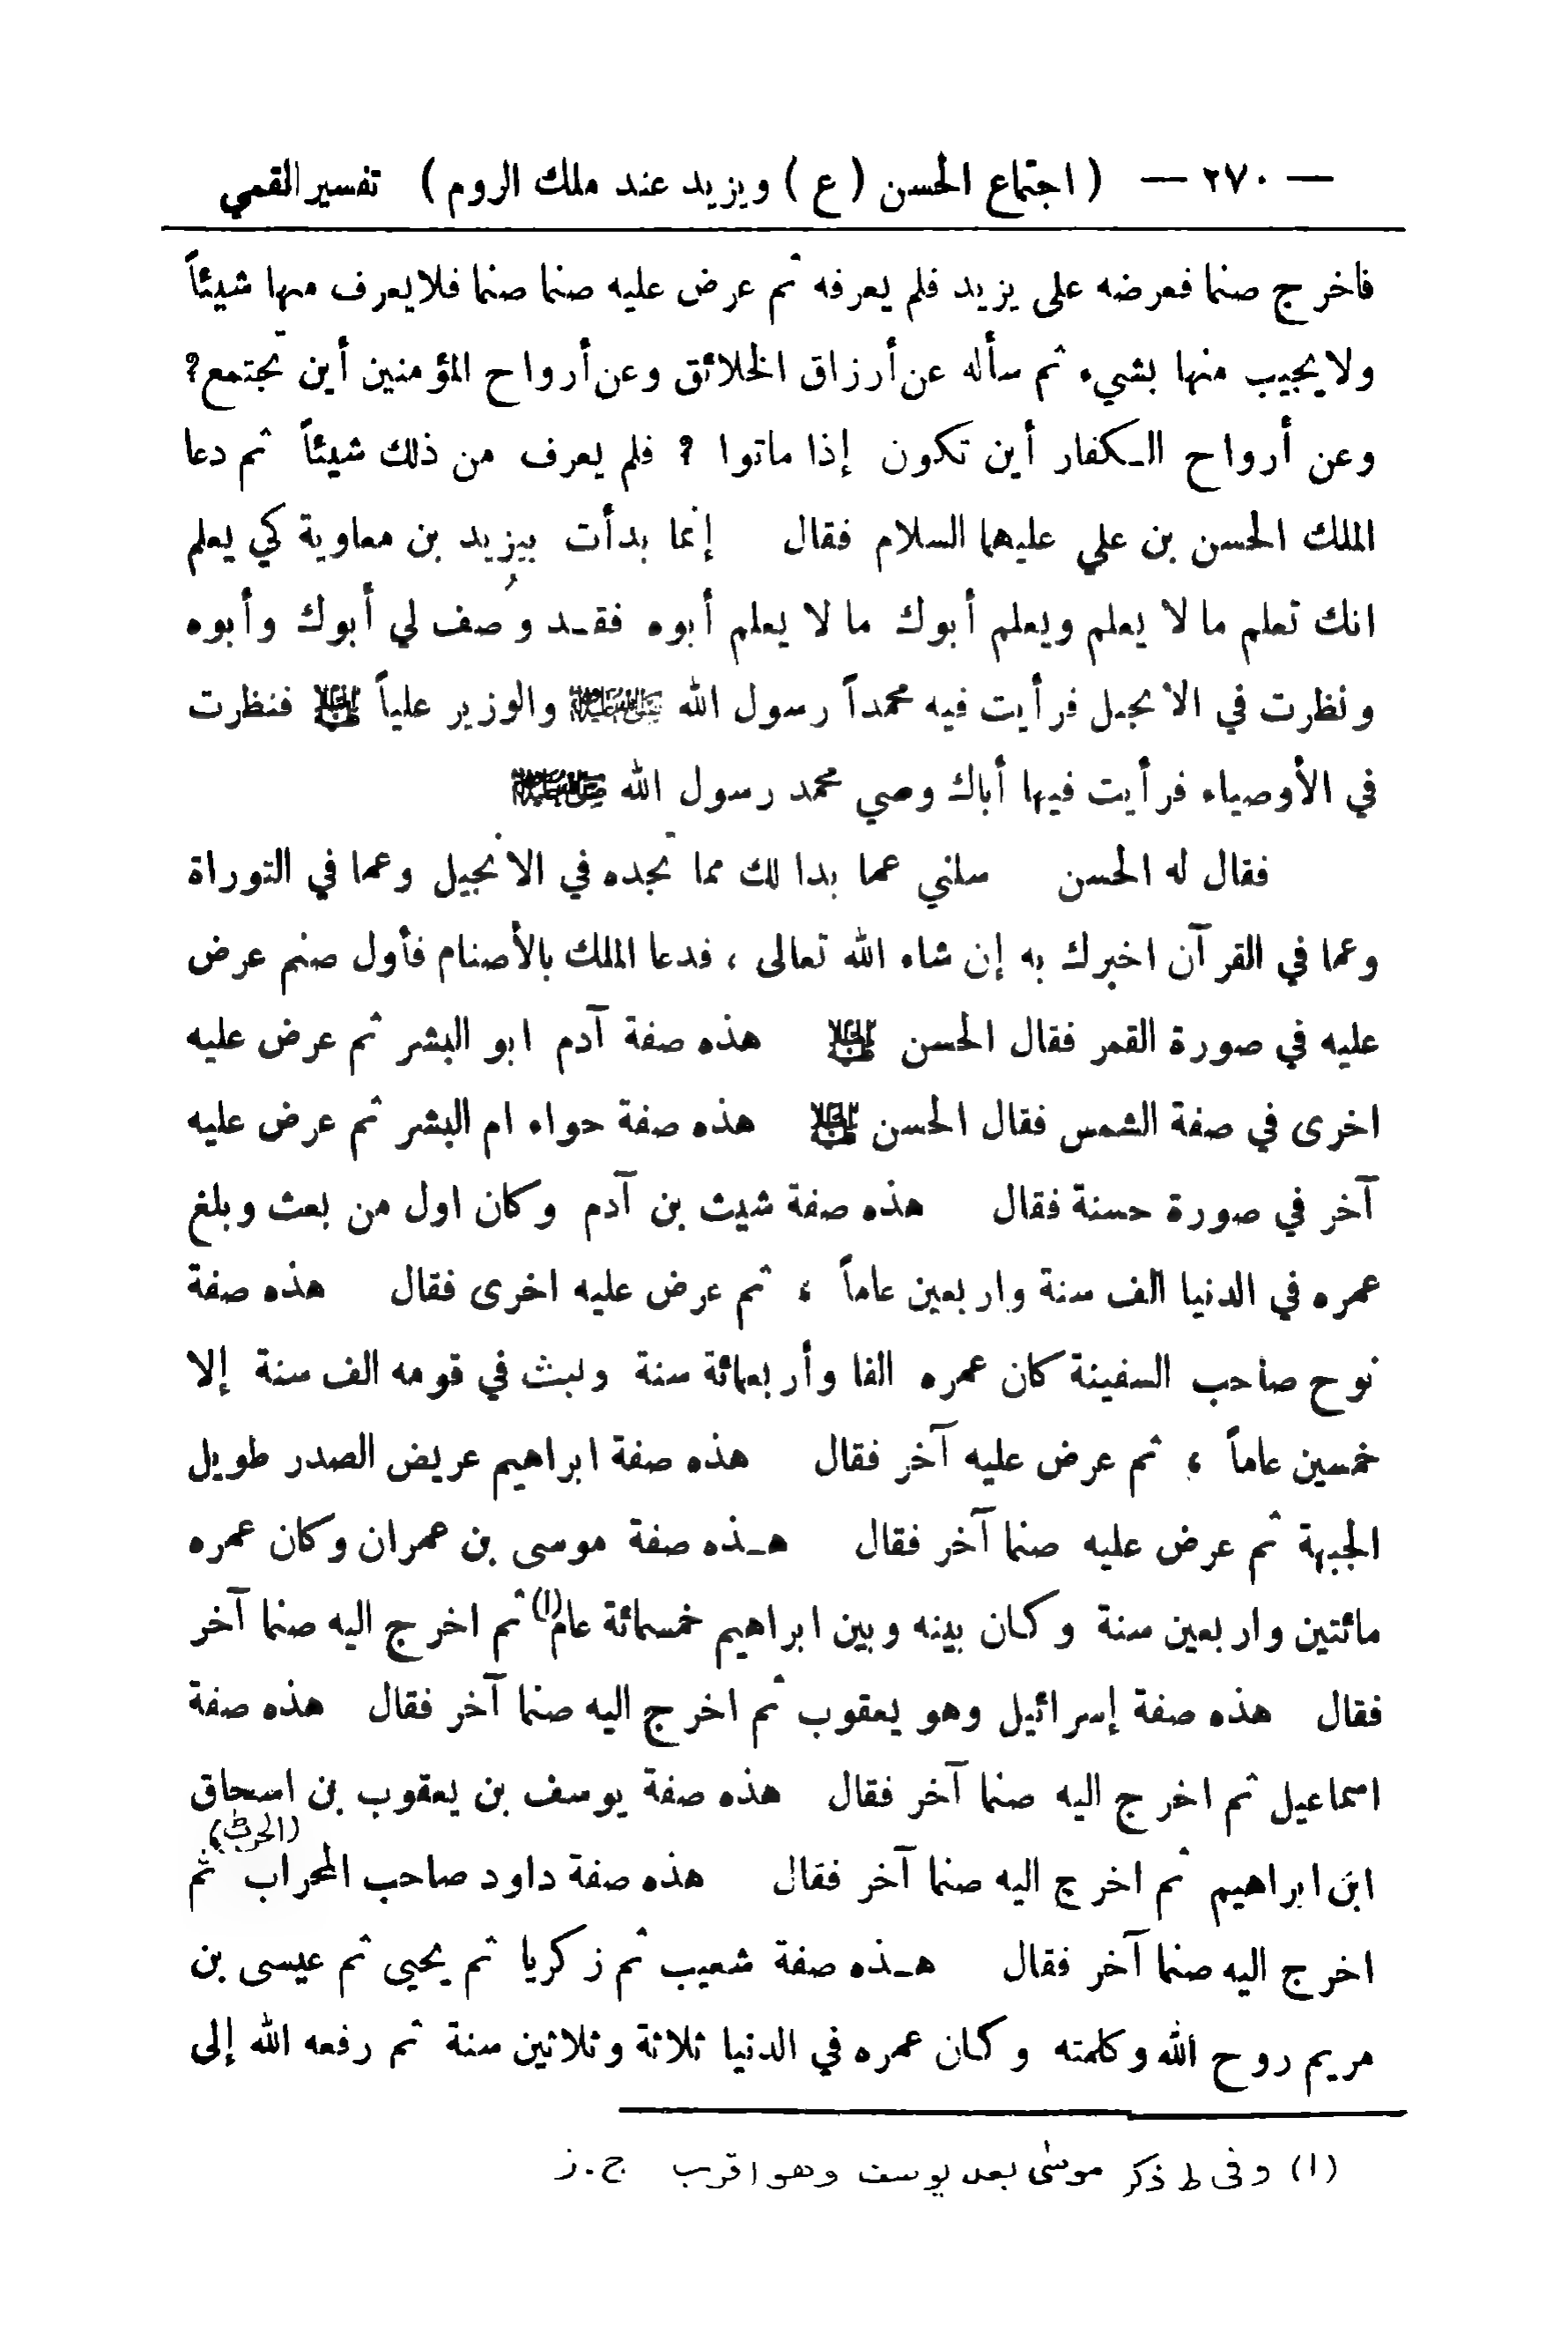 — ٢٧٠ — ( اجتماع الحسن (ع) ويزيد عند ملك الروم ) تفسير القمي
فاخرج صنما فعرضه على يزيد فلم يعرفه ثم عرض عليه صنما صنما فلا يعرف منها شيئاً
ولا يجيب منها بشيء ثم سأله عن أرزاق الخلائق وعن أرواح المؤمنين أين تجتمع؟
وعن أرواح الـكفار أين تكون إذا ماتوا ؟ فلم يعرف من ذلك شيئاً ثم دعا
الملك الحسن بن علي عليهما السلام فقال إنما بدأت بيزيد بن معاوية كي يعلم
انك تعلم ما لا يعلم ويعلم أبوك ما لا يعلم أبوه فقـد وُصف لي أبوك وأبوه
ونظرت في الانجيل فرأيت فيه محمداً رسول الله ﷺ والوزير علياً عليه السلام فنظرت
في الأوصياء فرأيت فيها أباك وصي محمد رسول الله ﷺ
فقال له الحسن سلني عما بدا لك مما تجده في الانجيل وعما في التوراة
وعما في القرآن اخبرك به إن شاء الله تعالى ، فدعا الملك بالأصنام فأول صنم عرض
عليه في صورة القمر فقال الحسن عليه السلام هذه صفة آدم ابو البشر ثم عرض عليه
اخرى في صفة الشمس فقال الحسن عليه السلام هذه صفة حواء ام البشر ثم عرض عليه
آخر في صورة حسنة فقال هذه صفة شيث بن آدم وكان اول من بعث وبلغ
عمره في الدنيا الف سنة واربعين عاماً ، ثم عرض عليه اخرى فقال هذه صفة
نوح صاحب السفينة كان عمره الفا وأربعمائة سنة ولبث في قومه الف سنة إلا
خمسين عاماً ، ثم عرض عليه آخر فقال هذه صفة ابراهيم عريض الصدر طويل
الجبهة ثم عرض عليه صنما آخر فقال هـذه صفة موسى بن عمران وكان عمره
مائتين واربعين سنة وكان بينه وبين ابراهيم خمسمائة عام(١) ثم اخرج اليه صنما آخر
فقال هذه صفة إسرائيل وهو يعقوب ثم اخرج اليه صنما آخر فقال هذه صفة
اسماعيل ثم اخرج اليه صنما آخر فقال هذه صفة يوسف بن يعقوب بن اسحاق
ابن ابراهيم ثم اخرج اليه صنما آخر فقال هذه صفة داود صاحب المحراب (الحرب) ثم
اخرج اليه صنما آخر فقال هـذه صفة شعيب ثم زكريا ثم يحيى ثم عيسى بن
مريم روح الله وكلمته وكان عمره في الدنيا ثلاثة وثلاثين سنة ثم رفعه الله إلى
(١) وفى ط ذكر موسى بعد يوسف وهو اقرب ج . ز